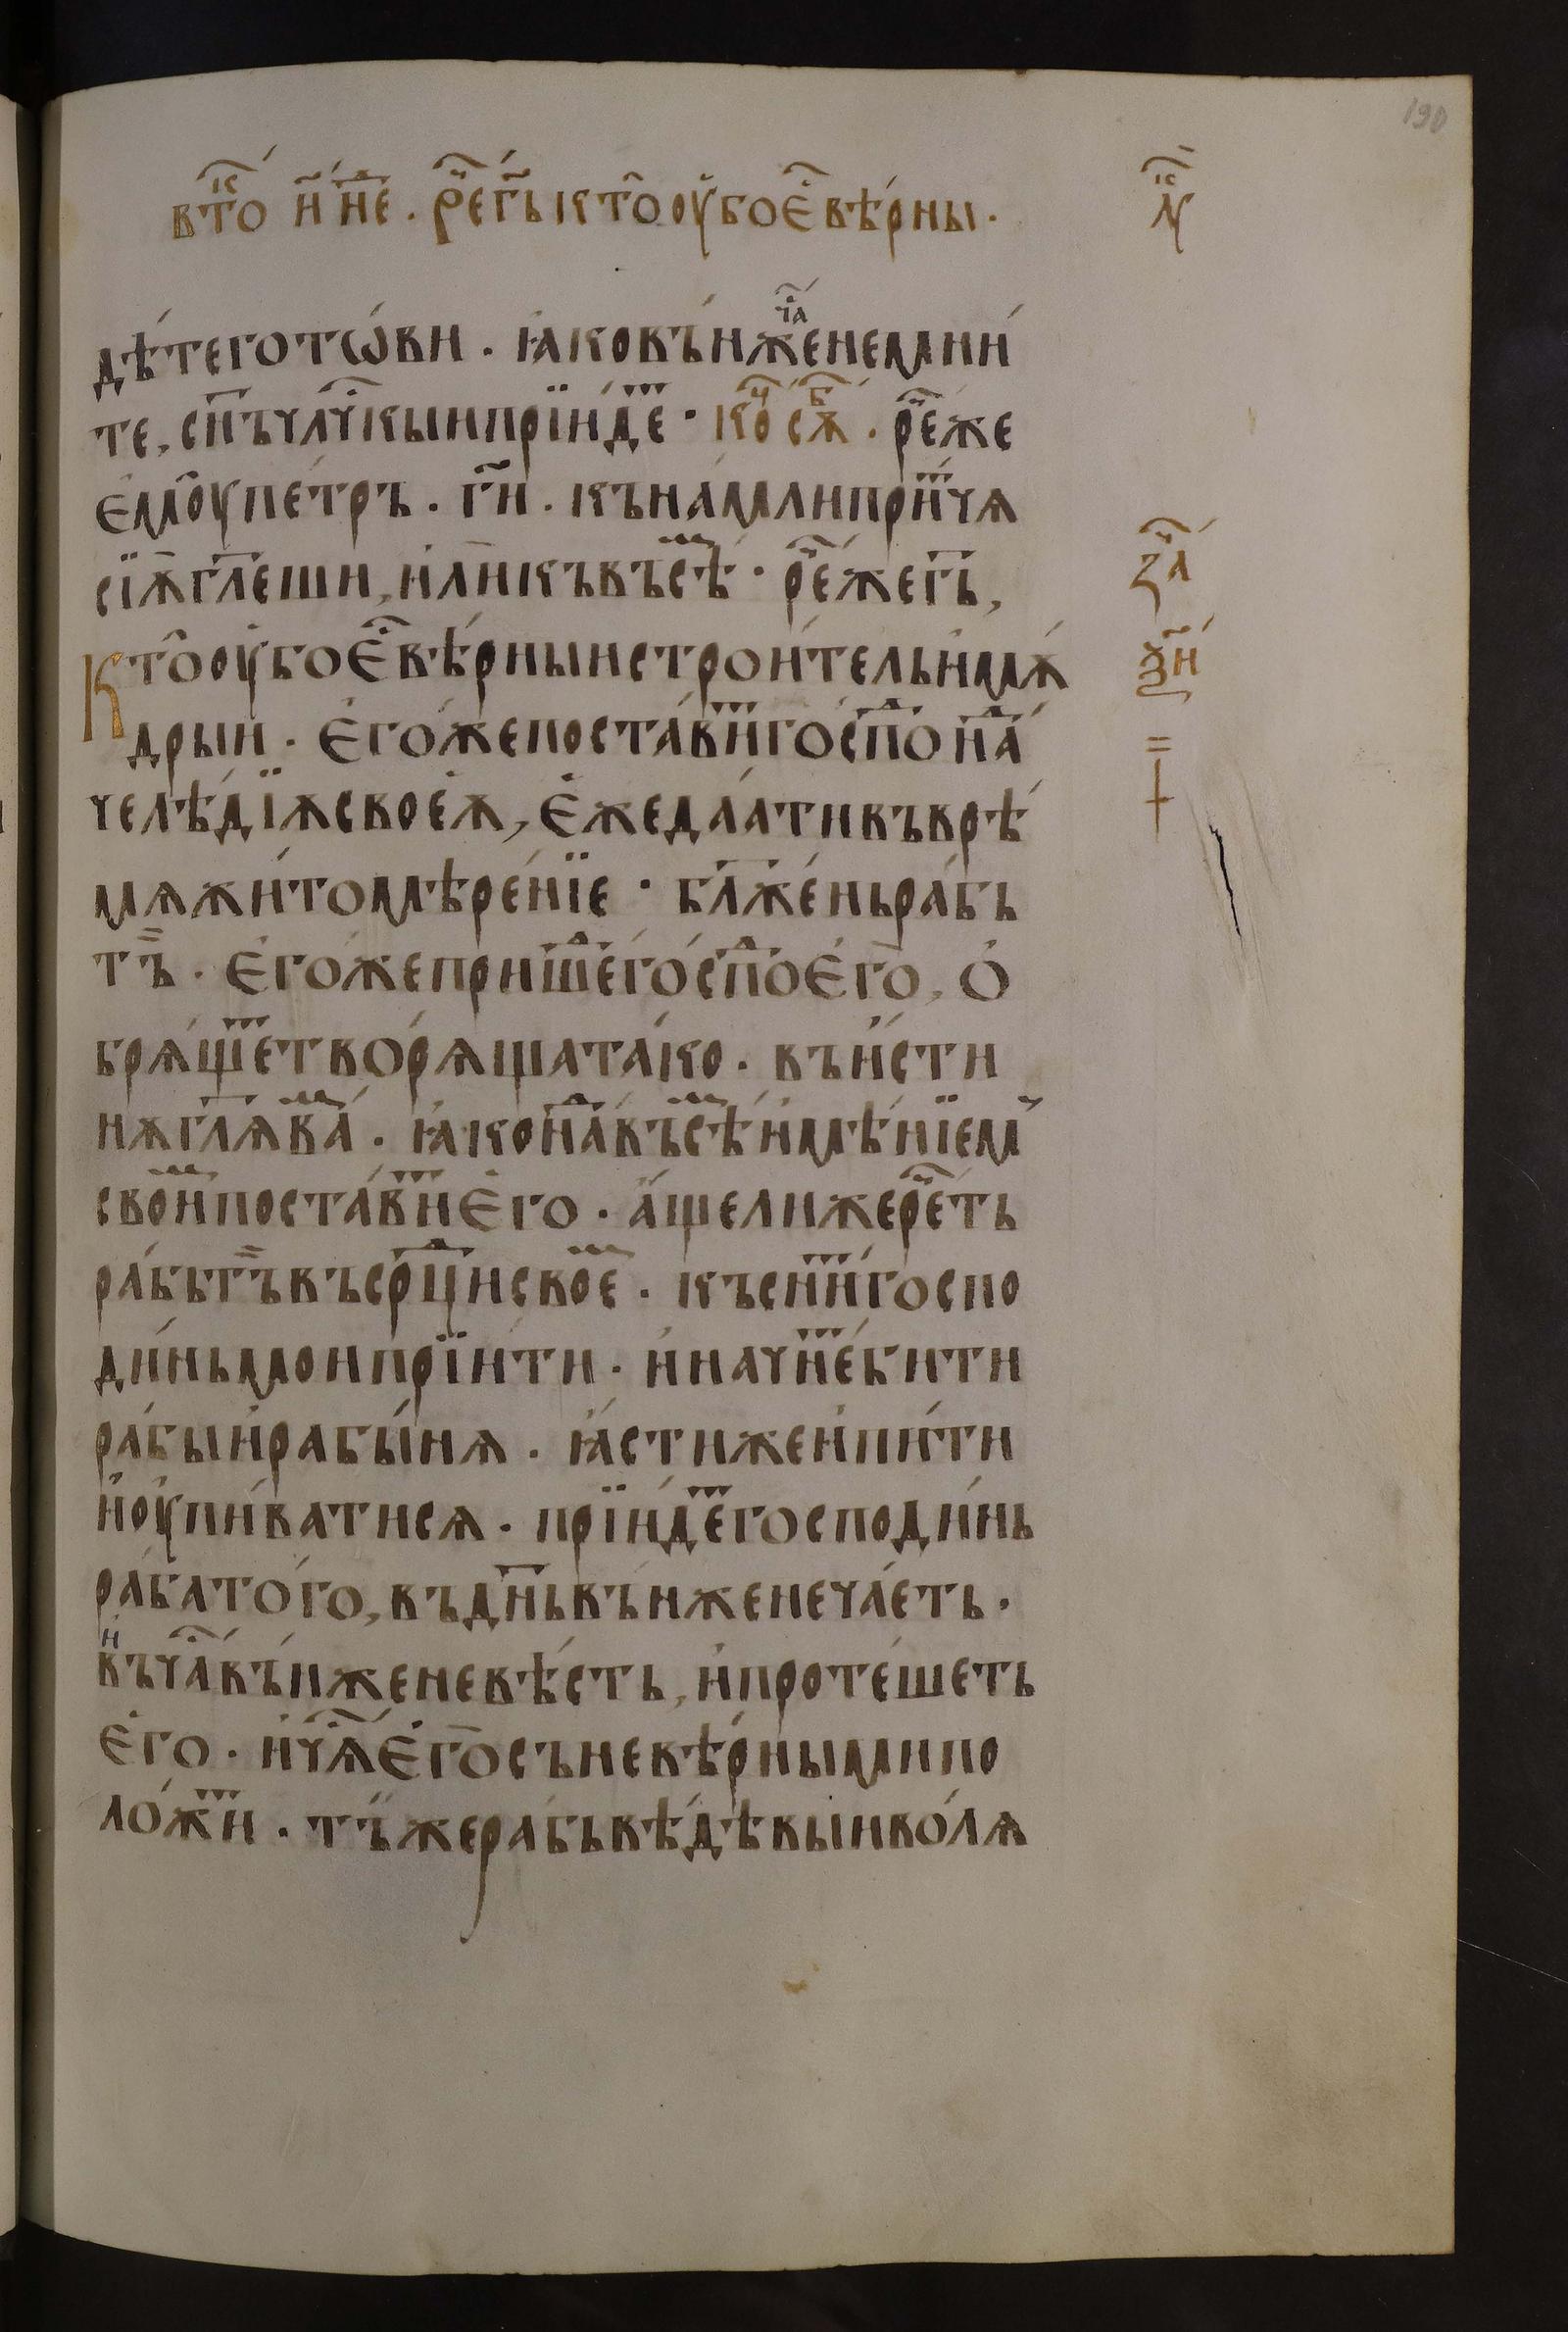 190
вто҇к н҃ нⷣе . рⷱе г҃ь кто̑ оу̓боє҆ⷭ вѣ́рны .
к҇ нⷣ
дѣ́те гото́ви . ꙗ҆ко въ́нжеⷱ҇ⷶ не мни́
те, сн҃ъ чл҃чкы̏ прїи́деⷮ . коⷰ҇ сѫⷠ҇ . рⷱе́ же
є҆моу̑ пе́тръ . г҃и . къ на́м ли при́тчѫ
сїѫ̀ г҃леши, и҆лѝ къ въсѣⷨ҇ . рⷱе́ же г҃ь,
за҇ч
Кто̑ оу̓бо є҆ⷭ вѣ́рныи строи́тель и҆ мѫ́
ѯ҃и
дрыи . є҆го́же поста́виⷮ госпоⷣ наⷣ
челѣ́дїѫ своеѫ, є҆же даа́ти въ врѣ́
=
†
мѧ жи́томѣре́нїе . бл҃же́нь ра́бь
тъ̏ . є҆го́же пришеⷣ госпоⷣ є҆го̀, о҆
брѧ́щеⷮ творѧща та́ко . въ и҆́сти
нѫ г҃лѧ ва́ⷨ . ꙗ҆ко наⷣ въсѣⷨ и҆мѣ́нїем
своиⷨ поста́виⷮ є҆го . а҆́ще ли же рⷱе́ть
ра́бь тъ̏ въ срⷣци своеⷨ . къснитⷮ госпо
ди́нь мои прїи́ти . и҆ начнеⷮ́ бити
ра́бы и҆ рабы́нѧ . ꙗ҆́сти же и҆ пи́ти
и҆ оу҆пи́ватисѧ . прїи́деⷮ господи́нь
раба того, въ дн҃ь въ́нже не ча́еть .
и
въ чаⷭ въ́нже не вѣ́сть, и҆ проте́шеть
є҆го . и҆ чѧⷭ є҆го̀ съ невѣ́рными по
ло́жиⷮ . тъ̏же рабь вѣ́дѣвыи во́лѫ